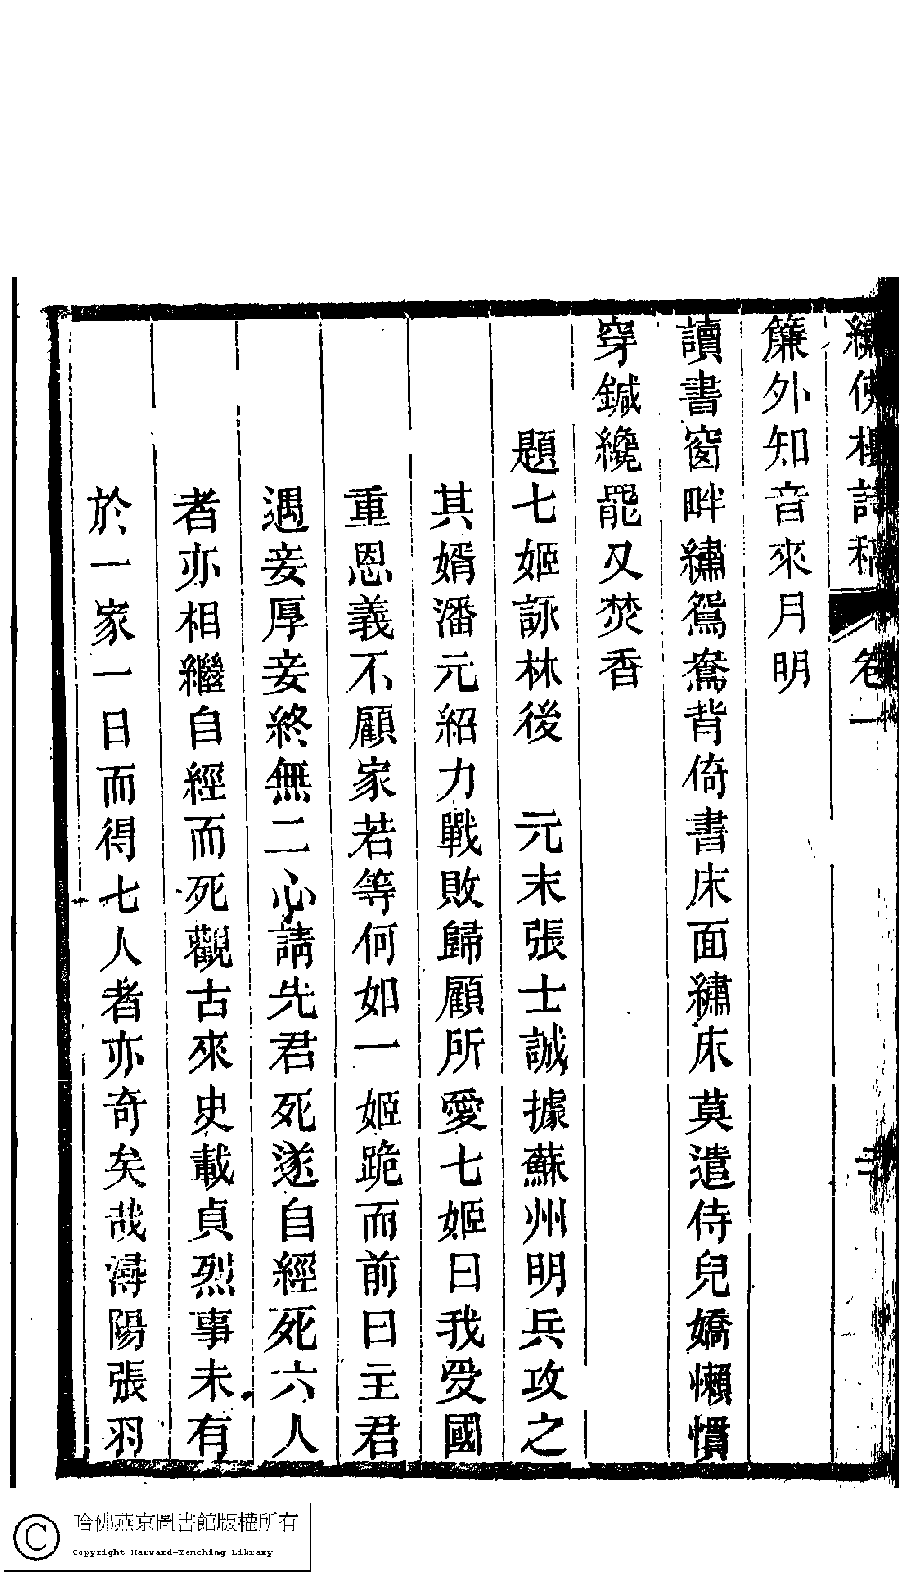 繡佛樓詩稿 卷一 二
簾外知音來月明
讀書窗畔繡鴛鴦背倚書床面繡床莫遣侍兒嬌懶慣
穿鍼纔罷又焚香
題七姬詠林後 元末張士誠據蘇州明兵攻之
其婿潘元紹力戰敗歸顧所愛七姬曰我受國
重恩義不顧家若等何如一姬跪而前曰主君
遇妾厚妾終無二心請先君死遂自經死六人
者亦相繼自經而死觀古來史載貞烈事未有
於一家一日而得七人者亦奇矣哉潯陽張羽
哈佛燕京圖書館版權所有
Copyright Harvard-Yenching Library